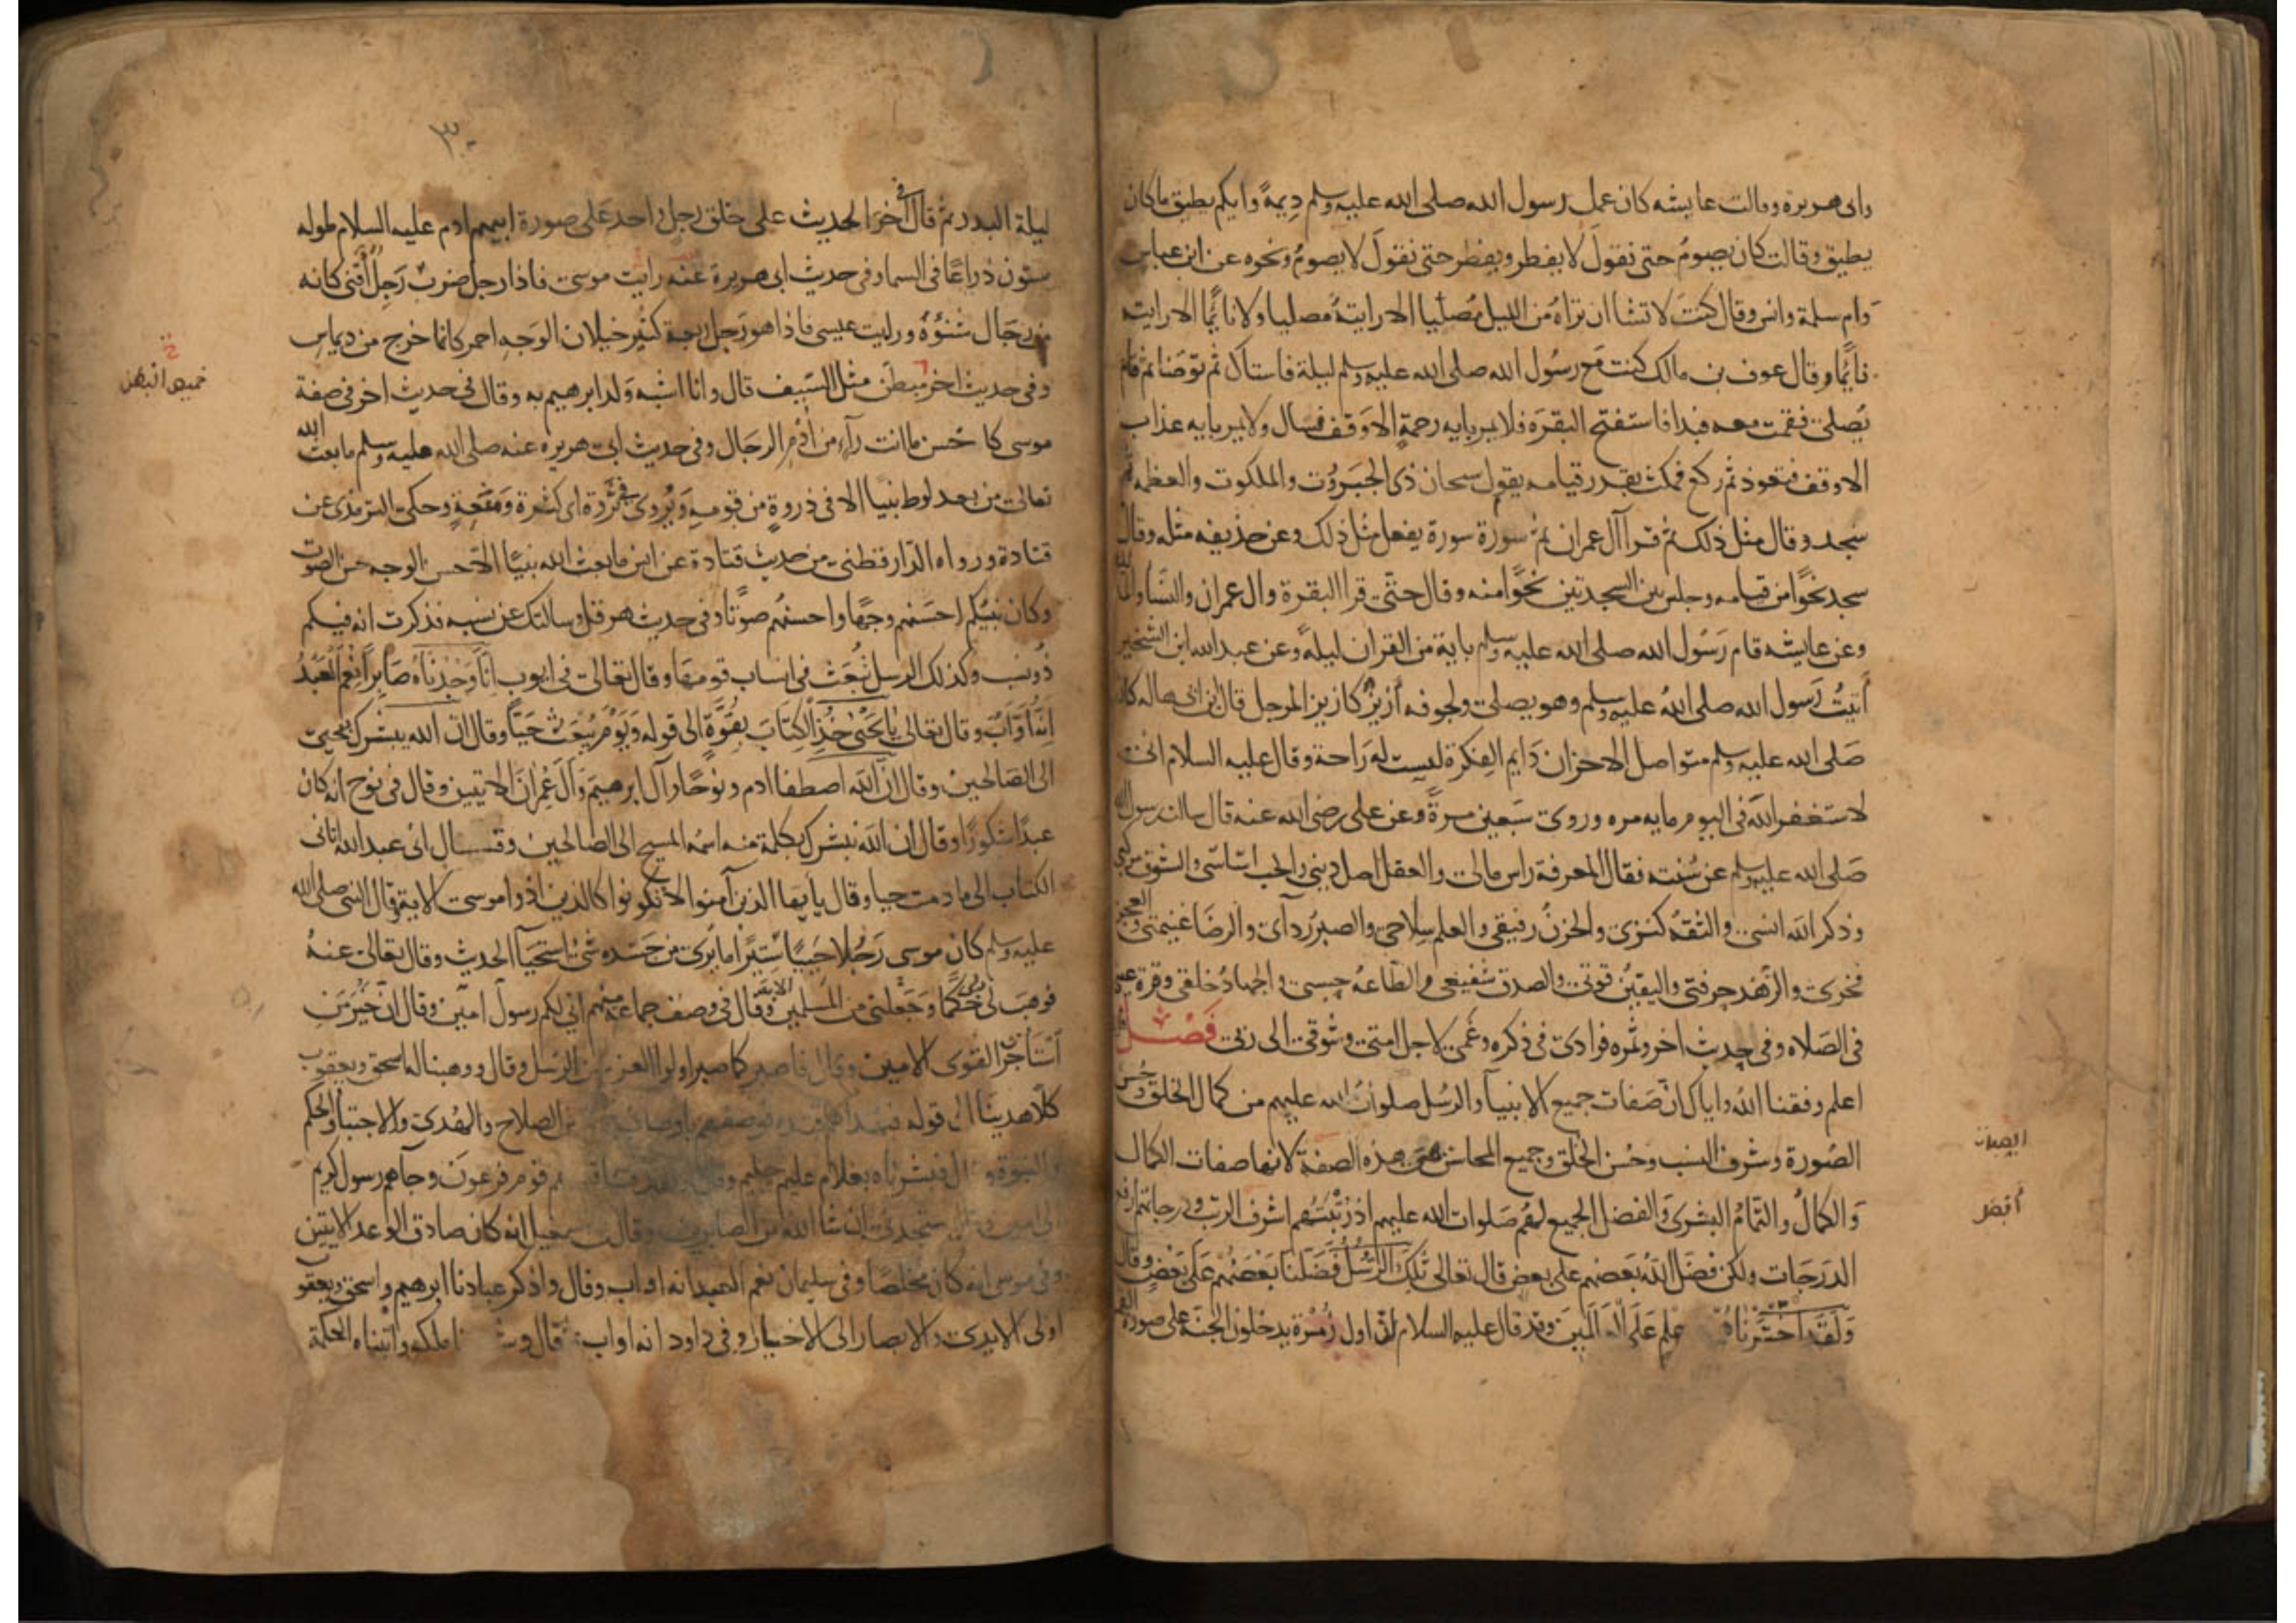 وابى هريرة وقالت عايشه كان عمل رسول الله صلى الله عليه وسلم ديمة وايكم يطيق ماكان
يطيق وقالت كان يصوم حتى نقول لا يفطر ويفطر حتى نقول لا يصوم ونحوه عن ابن عباس
وام سلمة وانس وقال كنت لا تشا ان تراه من الليل مصليا الا رايته مصليا ولا نايما الا رايته
نايما وقال عوف بن مالك كنت مع رسول الله صلى الله عليه وسلم ليلة فاستاك ثم توضا ثم قام
يصلى فقمت معه فبدا فاستفتح البقرة فلا يمر باية رحمة الا وقف فسال ولا يمر باية عذاب
الا وقف فتعوذ ثم ركع فمكث بقدر قيامه يقول سبحان ذى الجبروت والملكوت والعظمة ثم
سجد وقال مثل ذلك ثم قرا آل عمران ثم سورة سورة يفعل مثل ذلك وعن حذيفه مثله وقال
سجد نحوا من قيامه وجلس بين السجدتين نحوا منه وقال حتى قرا البقرة وال عمران والنسا والمائدة
وعن عايشه قام رسول الله صلى الله عليه وسلم باية من القران ليلة وعن عبد الله ابن الشخير
أتيت رسول الله صلى الله عليه وسلم وهو يصلى ولجوفه أزيز كازيز المرجل قال ابن ابى هاله كان
صلى الله عليه وسلم متواصل الاحزان دايم الفكرة ليست له راحة وقال عليه السلام انى
لاستغفر الله فى اليوم مايه مره وروى سبعين مرة وعن على رضى الله عنه قال سالت رسول الله
صلى الله عليه وسلم عن سنته فقال المعرفة راس مالى والعقل اصل دينى والحب اساسى والشوق مركبى
وذكر الله انسى والثقه كنزى والحزن رفيقى والعلم سلاحى والصبر ردآى والرضا غنيمتى والعجز
فخرى والزهد حرفتى واليقين قوتى والصدق شفيعى والطاعه حسبى والجهاد خلقى وقرة عينى
فى الصلاه وفى حديث اخر وثمره فوادى فى ذكره وغمى لاجل امتى وشوقى الى ربى فصل
اعلم وفقنا الله واياك ان صفات جميع الانبيآ والرسل صلوات الله عليهم من كمال الخلق وحسن
الصورة وشرف النسب وحسن الخلق وجميع المحاسن هى هذه الصفة لانها صفات الكمال
والكمال والتمام البشرى والفضل الجميع لهم صلوات الله عليهم اذ رتبتهم اشرف الرتب ودرجاتهم ارفع
الدرجات ولكن فضل الله بعضهم على بعض قال تعالى تلك الرسل فضلنا بعضهم على بعض وقال
ولقد اخترناهم علم على العالمين وقد قال عليه السلام ان اول زمرة يدخلون الجنة على صورة القمر
الصفات
٣٠
ليلة البدر ثم قال فى آخر الحديث على خلق رجل واحد على صورة ابيهم ادم عليه السلام طوله
ستون ذراعا فى السما وفى حديث ابى هريرة عنه رايت موسى فاذا رجل ضرب رجل أقنى كانه
من رجال شنؤة ورايت عيسى فاذا هو رجل ربعة كثير خيلان الوجه احمر كانما خرج من ديماس
وفى حديث اخر مبطن مثل السيف قال وانا اشبه ولد ابرهيم به وقال فى حديث اخر فى صفة
موسى كا حسن ما انت رآء من أدم الرجال وفى حديث ابى هريره عنه صلى الله عليه وسلم ما بعث الله
تعالى من بعد لوط نبيا الا فى ذروة من قومه ويروى فى ثروة اى كثرة ومنعة وحكى الترمذى عن
قتادة ورواه الدارقطنى من حديث قتادة عن انس ما بعث الله نبيا الا حسن الوجه حسن الصوت
وكان نبيكم احسنهم وجها واحسنهم صوتا وفى حديث هرقل وسالتك عن نسبه فذكرت انه فيكم
ذو نسب وكذلك الرسل تبعث فى انساب قومها وقال تعالى فى ايوب انا وجدناه صابرا نعم العبد
انه أواب وقال تعالى يا يحيى خذ الكتاب بقوة الى قوله ويوم يبعث حيا وقال ان الله يبشرك بيحيى
الى الصالحين وقال ان الله اصطفا ادم ونوحا وآل ابرهيم وآل عمران الايتين وقال فى نوح انه كان
عبدا شكورا وقال ان الله يبشرك بكلمة منه اسمه المسيح الى الصالحين وقال انى عبد الله اتانى
الكتاب الى ما دمت حيا وقال يأيها الذين آمنوا لا تكونوا كالذين اذوا موسى الاية وقال النبى صلى الله
عليه وسلم كان موسى رجلا حييا ستيرا ما يرى من جسده شئ استحيآ الحديث وقال تعالى عنه
فوهب لى ربى حكما وجعلنى من المسلمين الاية وقال فى وصف جماعة منهم انى لكم رسول امين وقال ان خير من
أستأجرت القوى الامين وقال فاصبر كما صبر اولوا العزم من الرسل وقال ووهبنا له اسحق ويعقوب
كلا هدينا الى قوله فبهداهم اقتده فوصفهم باوصاف الصلاح والهدى والاجتبا والحكم
والنبوة وقال فبشرناه بغلام عليم حليم وقال قوم فرعون وجآهم رسول كريم
الى امين وقال ستجدنى ان شا الله من الصابرين وقال فى اسمعيل انه كان صادق الوعد الايتين
وفى موسى انه كان مخلصا وفى سليمان نعم العبد انه اواب وقال واذكر عبادنا ابرهيم واسحق ويعقوب
اولى الايدى والابصار الى الاخيار وفى داود انه اواب قال ملكه واتيناه الحكمة